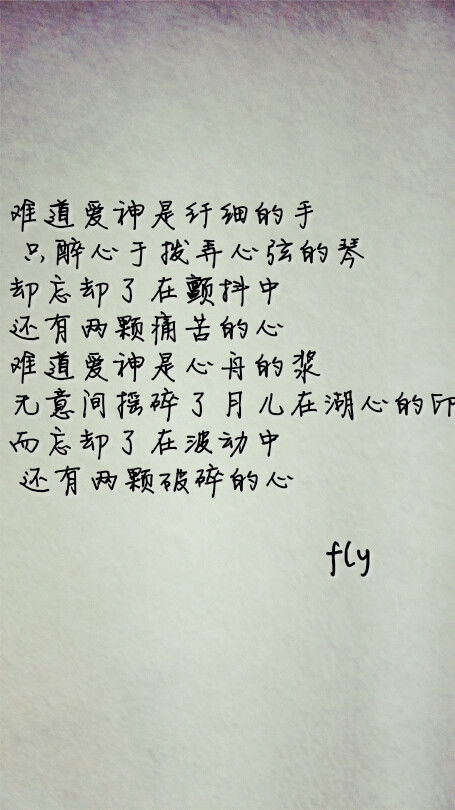 难道爱神是纤细的手
只醉心于拨弄心弦的琴
却忘却了在颤抖中
还有两颗痛苦的心
难道爱神是心舟的浆
无意间摇碎了月儿在湖心的印
而忘却了在波动中
还有两颗破碎的心
fly